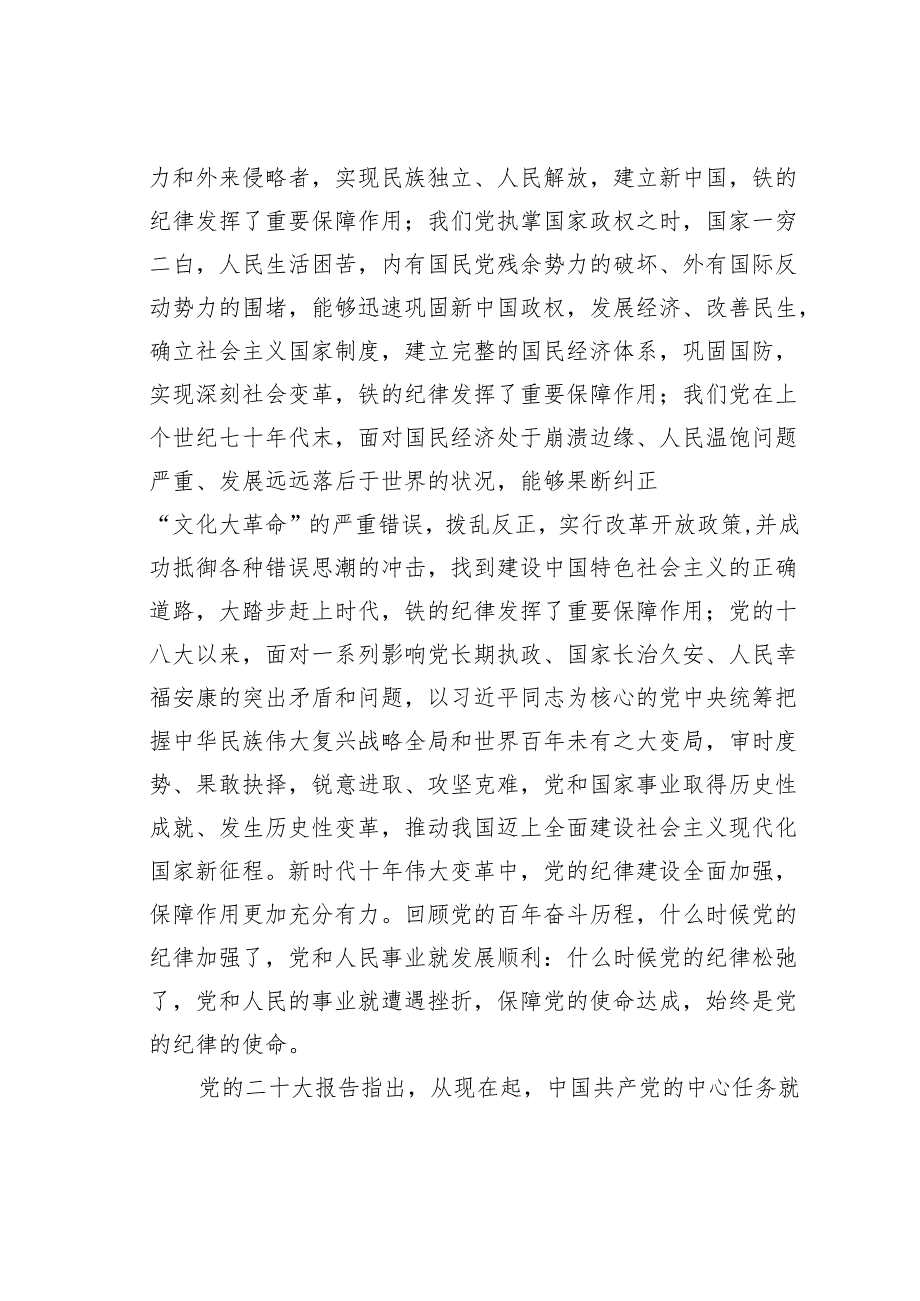 力和外来侵略者，实现民族独立、人民解放，建立新中国，铁的
纪律发挥了重要保障作用；我们党执掌国家政权之时，国家一穷
二白，人民生活困苦，内有国民党残余势力的破坏、外有国际反
动势力的围堵，能够迅速巩固新中国政权，发展经济、改善民生，
确立社会主义国家制度，建立完整的国民经济体系，巩固国防，
实现深刻社会变革，铁的纪律发挥了重要保障作用；我们党在上
个世纪七十年代末，面对国民经济处于崩溃边缘、人民温饱问题
严重、发展远远落后于世界的状况，能够果断纠正
“文化大革命”的严重错误，拨乱反正，实行改革开放政策,并成
功抵御各种错误思潮的冲击，找到建设中国特色社会主义的正确
道路，大踏步赶上时代，铁的纪律发挥了重要保障作用；党的十
八大以来，面对一系列影响党长期执政、国家长治久安、人民幸
福安康的突出矛盾和问题，以习近平同志为核心的党中央统筹把
握中华民族伟大复兴战略全局和世界百年未有之大变局，审时度
势、果敢抉择，锐意进取、攻坚克难，党和国家事业取得历史性
成就、发生历史性变革，推动我国迈上全面建设社会主义现代化
国家新征程。新时代十年伟大变革中，党的纪律建设全面加强，
保障作用更加充分有力。回顾党的百年奋斗历程，什么时候党的
纪律加强了，党和人民事业就发展顺利：什么时候党的纪律松弛
了，党和人民的事业就遭遇挫折，保障党的使命达成，始终是党
的纪律的使命。
党的二十大报告指出，从现在起，中国共产党的中心任务就